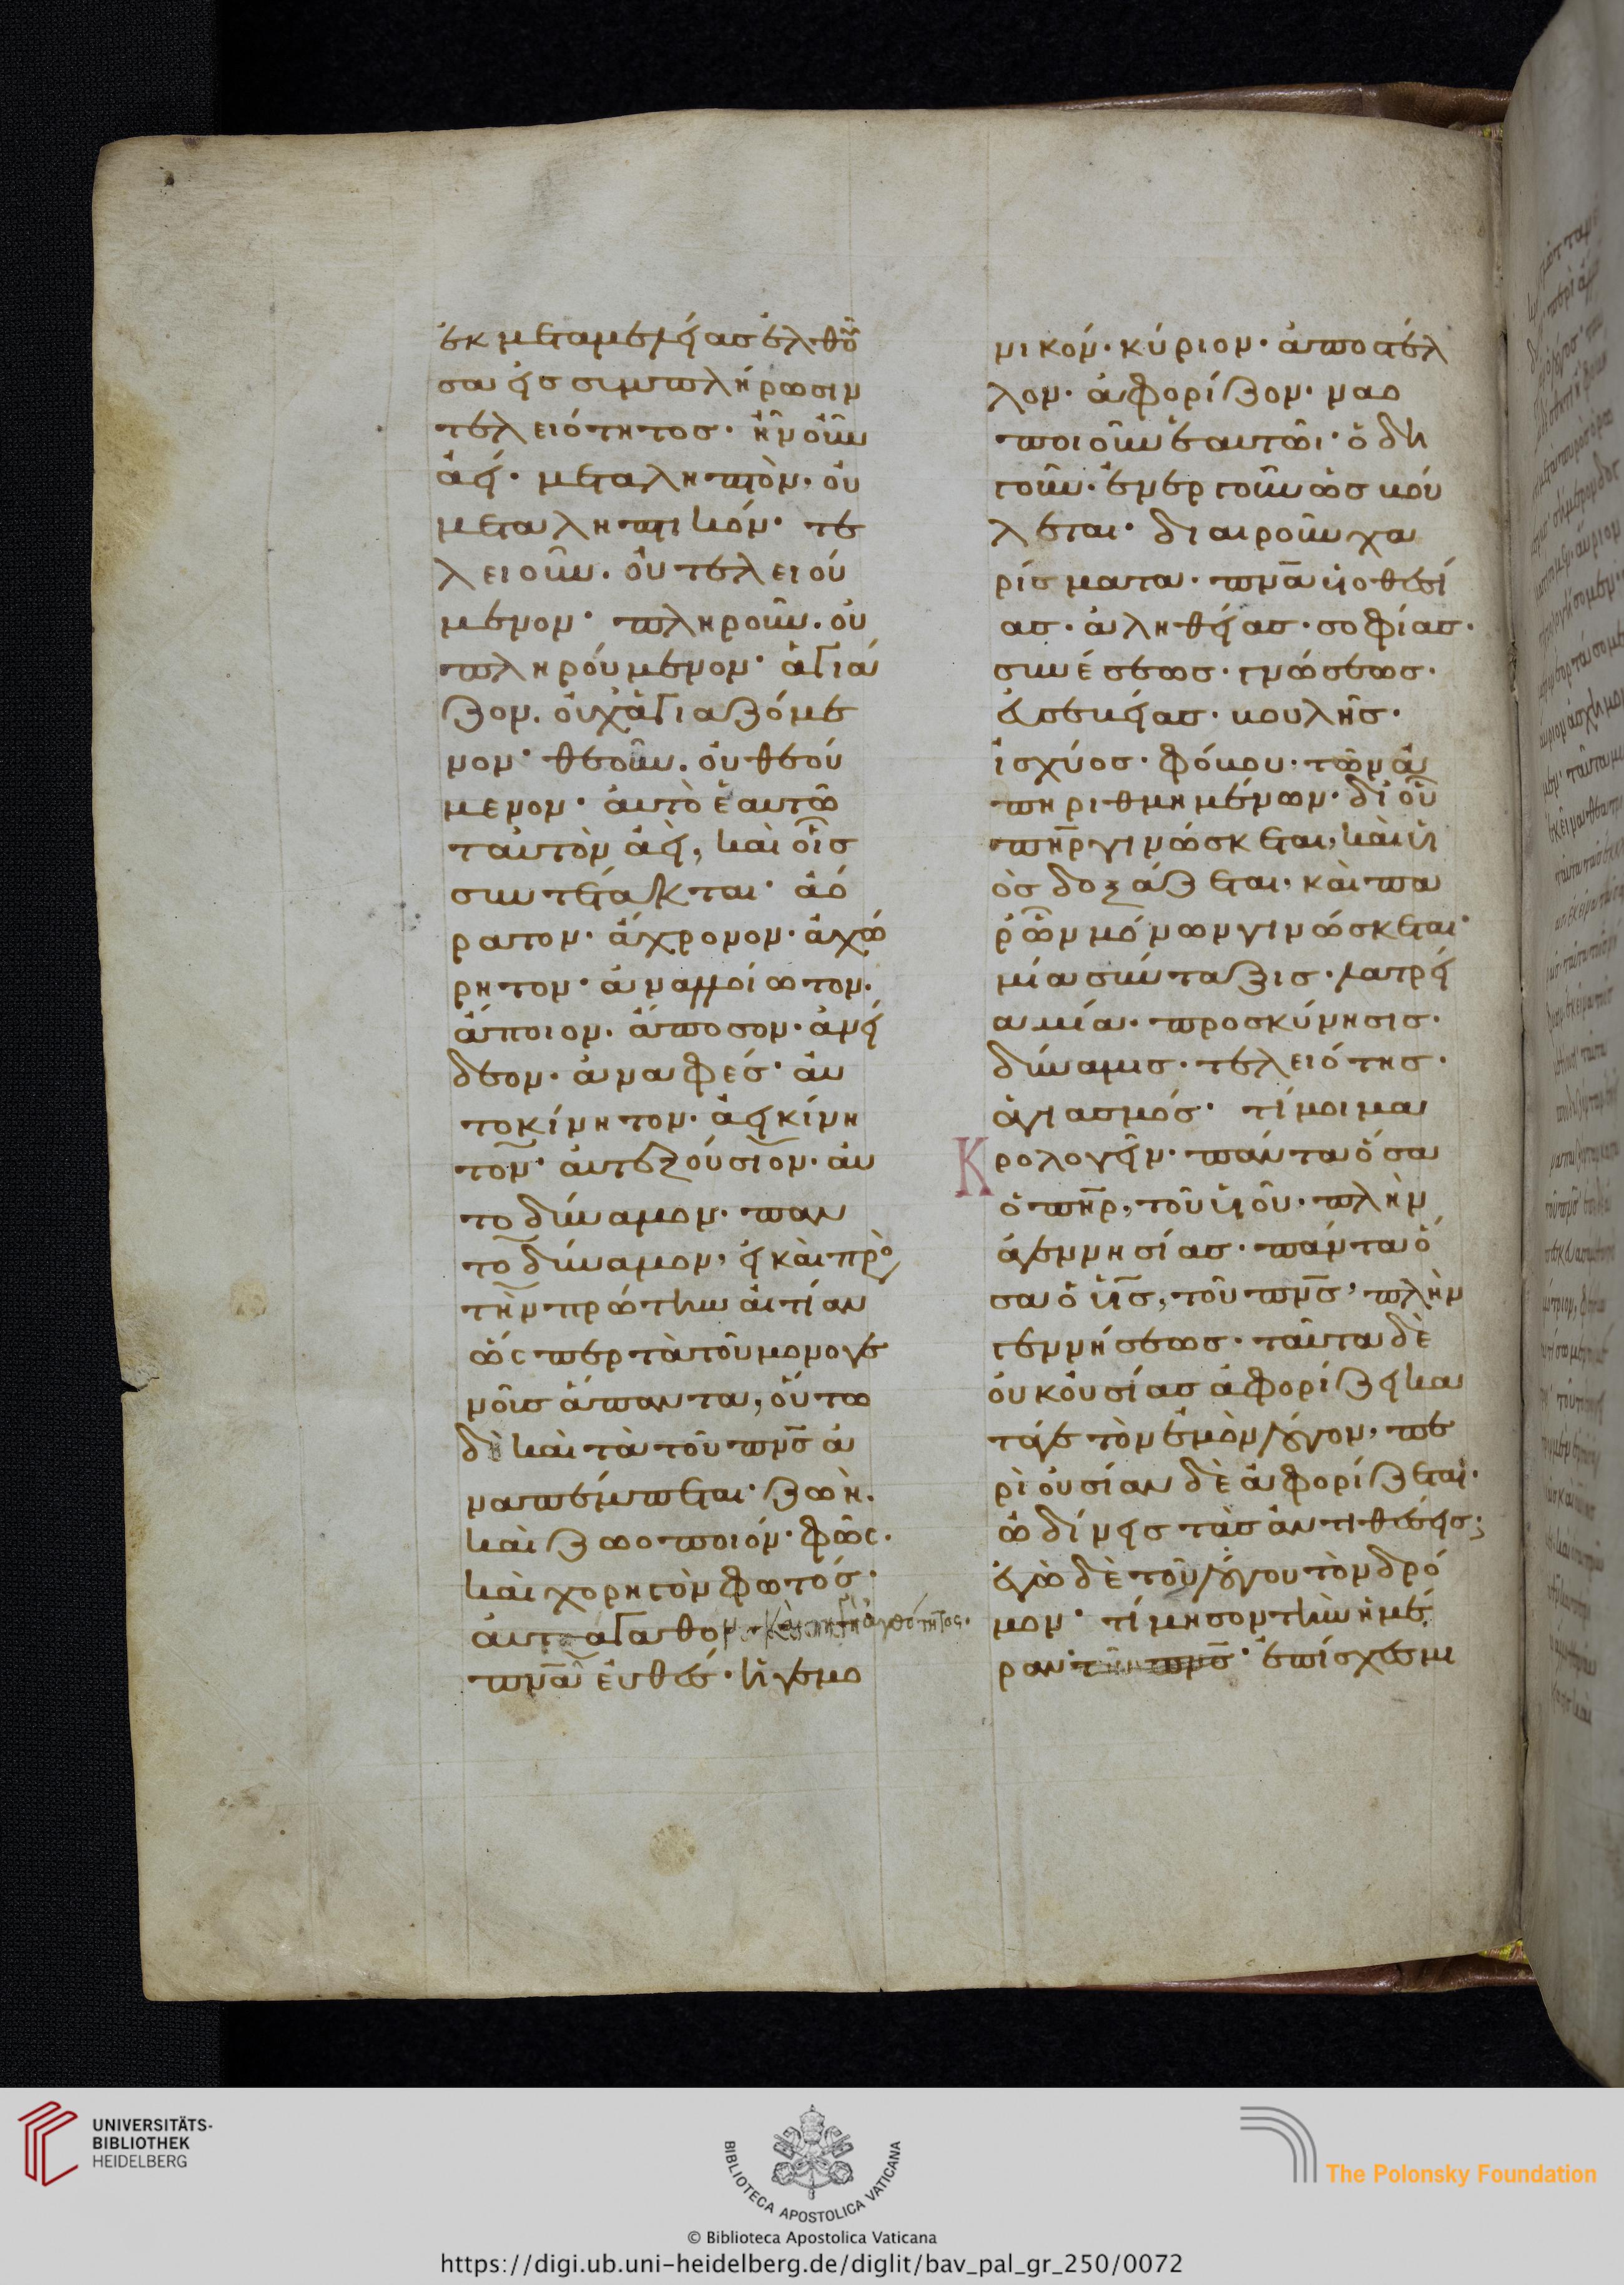 ἐκ μεταμελείας ἐλθοῦ
σα εἰς συμπλήρωσιν
τελειότητος· ἦν οὖν
ἀεί· μεταληπτὸν, οὐ
μεταληπτικόν· τε
λειοῦν, οὐ τελειού
μενον· πληροῦν, οὐ
πληρούμενον· ἁγιά
ζον, οὐχ ἁγιαζόμε
νον· θεοῦν, οὐ θεού
μενον· αὐτὸ ἑαυτῶ
ταυτὸν ἀεὶ, καὶ οἷς
συντέτακται· ἀό
ρατον· ἄχρονον· ἀχώ
ρητον· ἀναλλοίωτον·
ἄποιον· ἄποσον· ἀνεί
δεον· ἀναφές· αὐ
τοκίνητον· ἀεικίνη
τον· αὐτεξούσιον· αὐ
τοδύναμον· παν
τοδύναμον, εἰ καὶ πρὸς
τὴν πρώτην αἰτίαν
ὥσπερ τὰ τοῦ μονογε
νοῦς ἅπαντα, οὕτω
δὴ καὶ τὰ τοῦ πν̅ς ἀ
ναπέμπεται· ζωὴ·
καὶ ζωοποιόν· φῶς·
καὶ χορηγὸν φωτός·
αὐτοάγαθον· καὶ πηγὴ ἀγαθότητος·
πν̅α εὐθές· ἡγεμο
νικόν· κύριον· ἀποστέλ
λον· ἀφορίζον· ναο
ποιοῦν ἑαυτῶι· ὁδη
γοῦν· ἐνεργοῦν ὡς βού
λεται· διαιροῦν χα
ρίσματα· πν̅α υἱοθεσί
ας· ἀληθείας· σοφίας·
συνέσεως· γνώσεως·
εὐσεβείας· βουλῆς·
ἰσχύος· φόβου· τῶν ἀ
πηριθμημένων· δι' οὗ
πη̅ρ γινώσκεται, καὶ υἱ
ὸς δοξάζεται· καὶ πα
ρ' ὧν μόνων γινώσκεται·
μία σύνταξις· λατρεί
α μία· προσκύνησις·
δύναμις· τελειότης·
ἁγιασμός· τί μοι μα
κρολογεῖν· πάντα ὅσα
ὁ πη̅ρ, τοῦ υἱοῦ· πλὴν
ἀγεννησίας· πάντα ὅ
σα ὁ υἱ̅ς, τοῦ πν̅ς, πλὴν
γεννήσεως· ταῦτα δὲ
οὐκ οὐσίας ἀφορίζει κα
τά γε τὸν ἐμὸν λόγον, πε
ρὶ οὐσίαν δὲ ἀφορίζεται·
ὠδίνεις τὰς ἀντιθέσεις;
ἐγὼ δὲ τοῦ λόγου τὸν δρό
μον· τίμησον τὴν ἡμέ
ραν τοῦ πν̅ς· ἐπίσχες μι
UNIVERSITÄTS-
BIBLIOTHEK
HEIDELBERG
BIBLIOTECA APOSTOLICA VATICANA
The Polonsky Foundation
© Biblioteca Apostolica Vaticana
https://digi.ub.uni-heidelberg.de/diglit/bav_pal_gr_250/0072